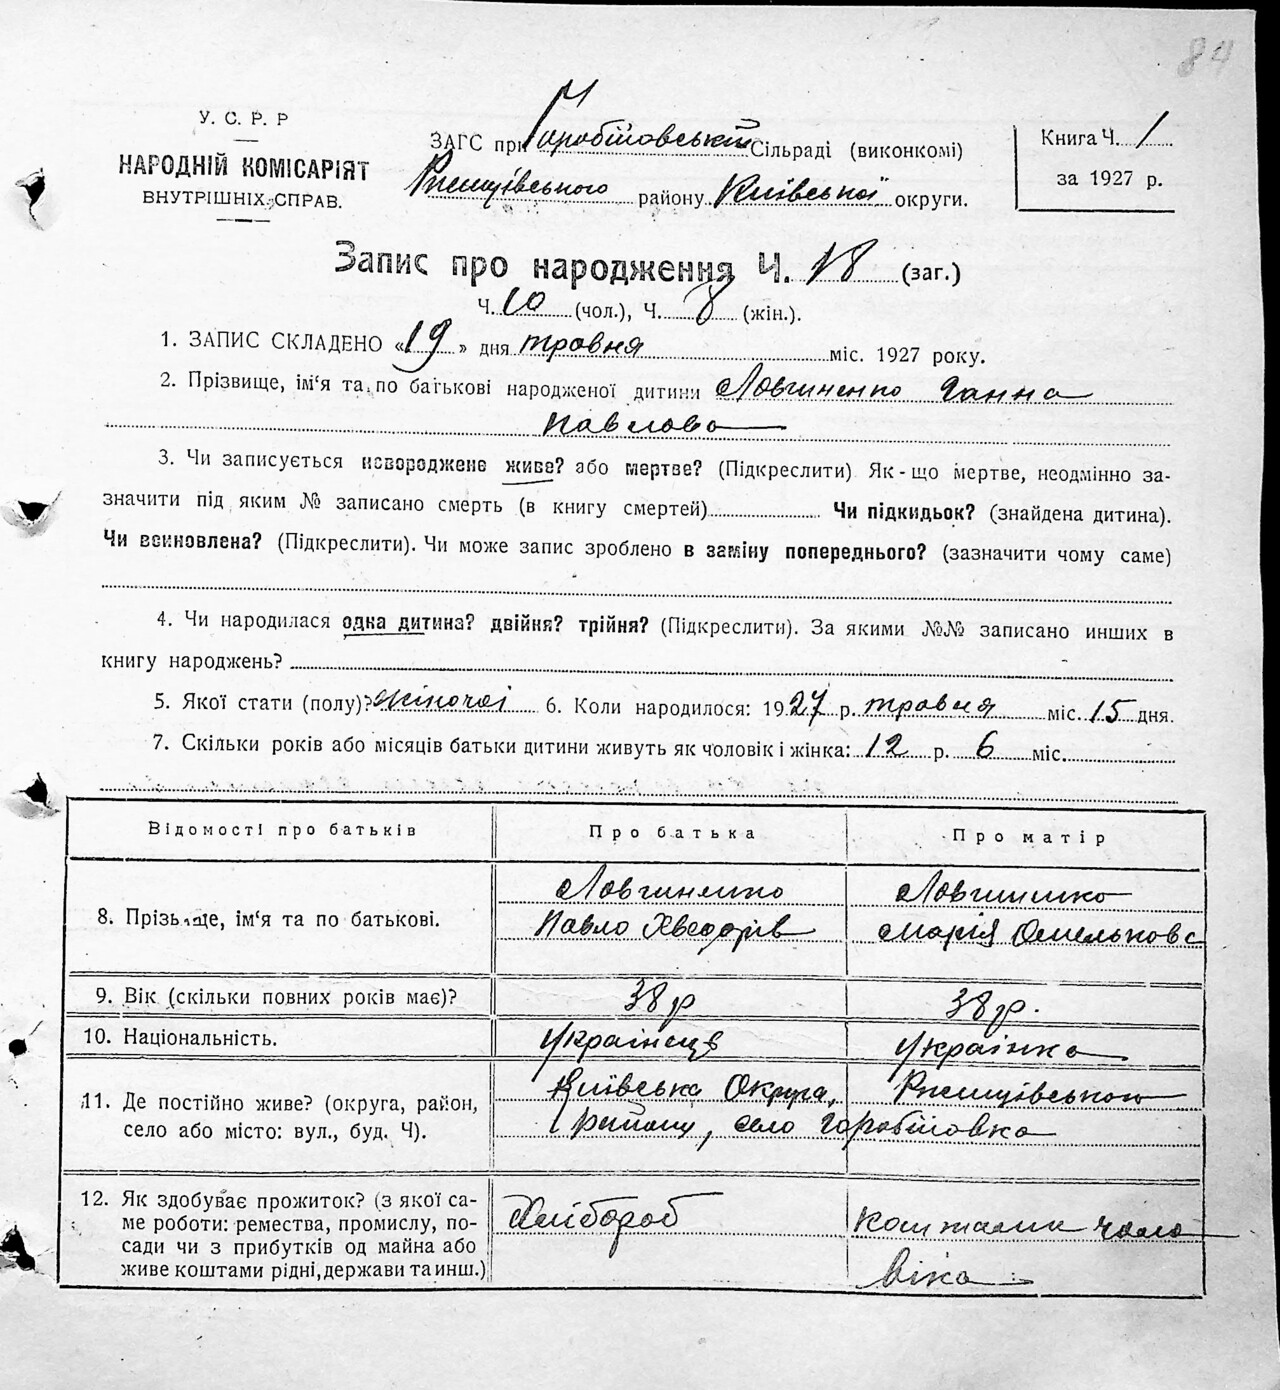 84
У. С. Р. Р
НАРОДНІЙ КОМІСАРІЯТ
ВНУТРІШНІХ СПРАВ.
ЗАГС при Горобіївській Сільраді (виконкомі)
Ржищівського району Київської округи.
Книга Ч. 1
за 1927 р.
Запис про народження Ч. 18 (заг.)
Ч. 10 (чол.), Ч. 8 (жін.).
1. ЗАПИС СКЛАДЕНО «19» дня травня міс. 1927 року.
2. Прізвище, ім'я та по батькові народженої дитини Ловгиненко Ганна
Павлова
3. Чи записується новороджене живе? або мертве? (Підкреслити) Як-що мертве, неодмінно за-
значити під яким № записано смерть (в книгу смертей) Чи підкидьок? (знайдена дитина).
Чи всиновлена? (Підкреслити). Чи може запис зроблено в заміну попереднього? (зазначити чому саме)
4. Чи народилася одна дитина? двійня? трійня? (Підкреслити). За якими №№ записано инших в
книгу народжень?
5. Якої стати (полу)? жіночої 6. Коли народилося: 1927 р. травня міс. 15 дня.
7. Скільки років або місяців батьки дитини живуть як чоловік і жінка: 12 р. 6 міс.
Відомості про батьків
Про батька
Про матір
8. Прізвище, ім'я та по батькові.
Ловгиненко
Павло Хведорів
Ловгиненко
Марія Омельковс
9. Вік (скільки повних років має)?
38 р
38 р.
10. Національність.
Українець
Українка
11. Де постійно живе? (округа, район,
село або місто: вул., буд. Ч).
Київська Округа, Ржищівського
району, село Горобіївка
12. Як здобуває прожиток? (з якої са-
ме роботи: ремества, промислу, по-
сади чи з прибутків од майна або
живе коштами рідні, держави та инш.)
Хлібороб
коштами чоло
віка